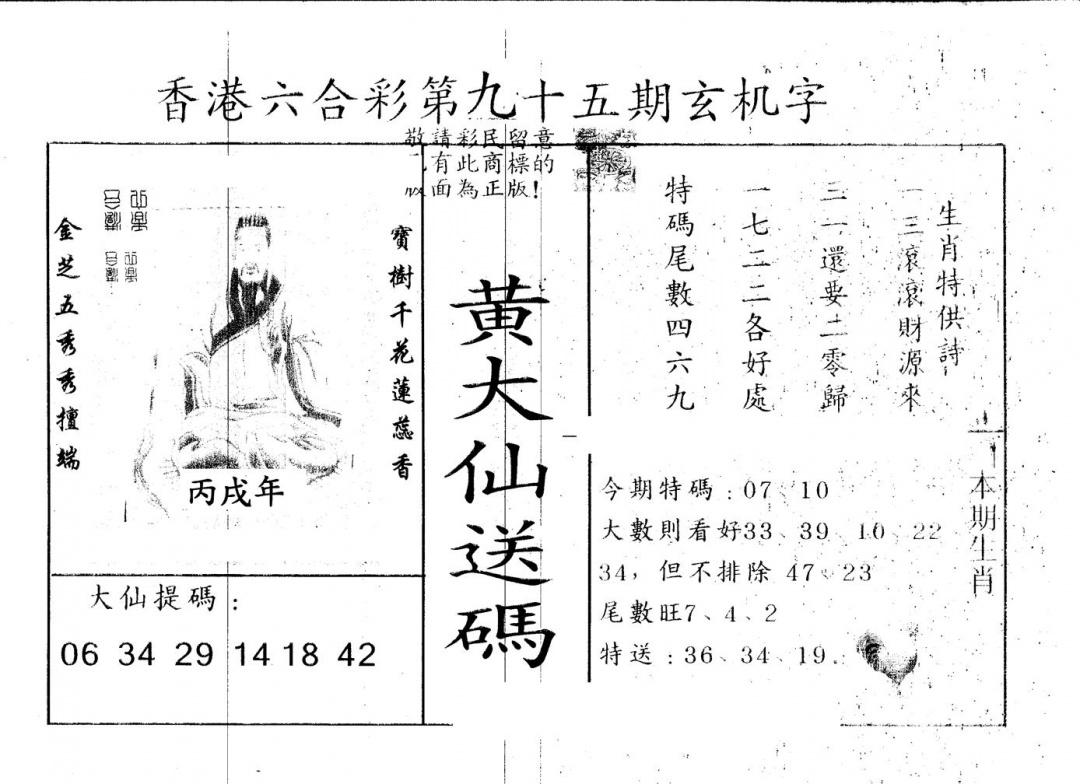 香港六合彩第九十五期玄机字
敬請彩民留意
有此商標的
版面為正版!
金芝五秀秀擅端
寶樹千花蓮蕊香
丙戌年
大仙提碼：
06 34 29 14 18 42
黃大仙送碼
生肖特供詩
一三滾滾財源來
三一還要二零歸
一七二二各好處
特碼尾數四六九
本期生肖
今期特碼：07、10
大數則看好33、39、10、22
34，但不排除 47、23
尾數旺7、4、2
特送：36、34、19.